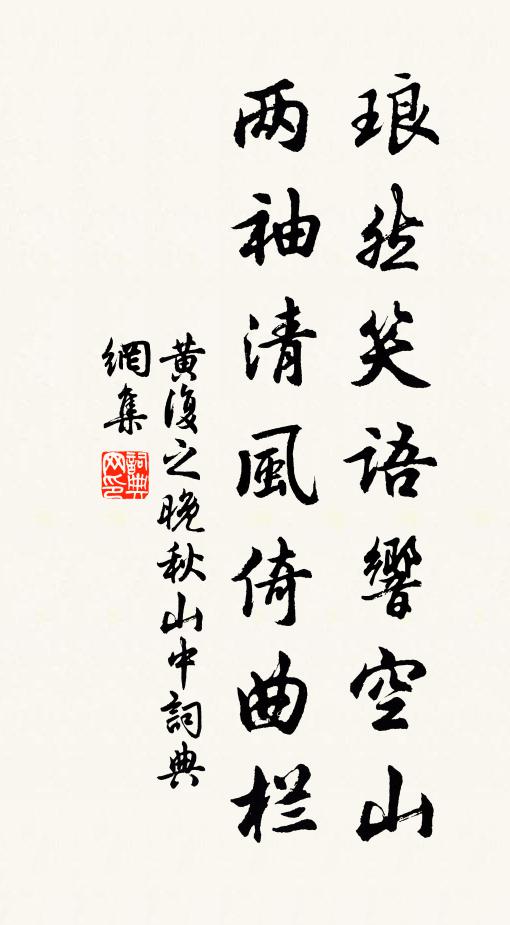 琅然笑语響空山
两袖清風倚曲栏
黄復之晚秋山中詞典
網集
詞典网印